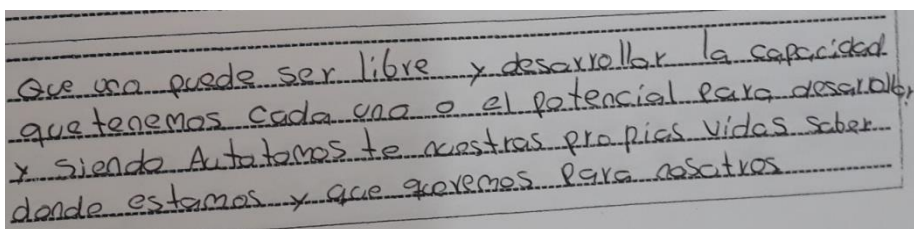 Que una puede ser libre y desarrollar la capacidad
que tenemos cada una o el potencial para desarollar,
y siendo Autatomos te nuestras propias vidas saber
donde estamos y que queremos para nosotros